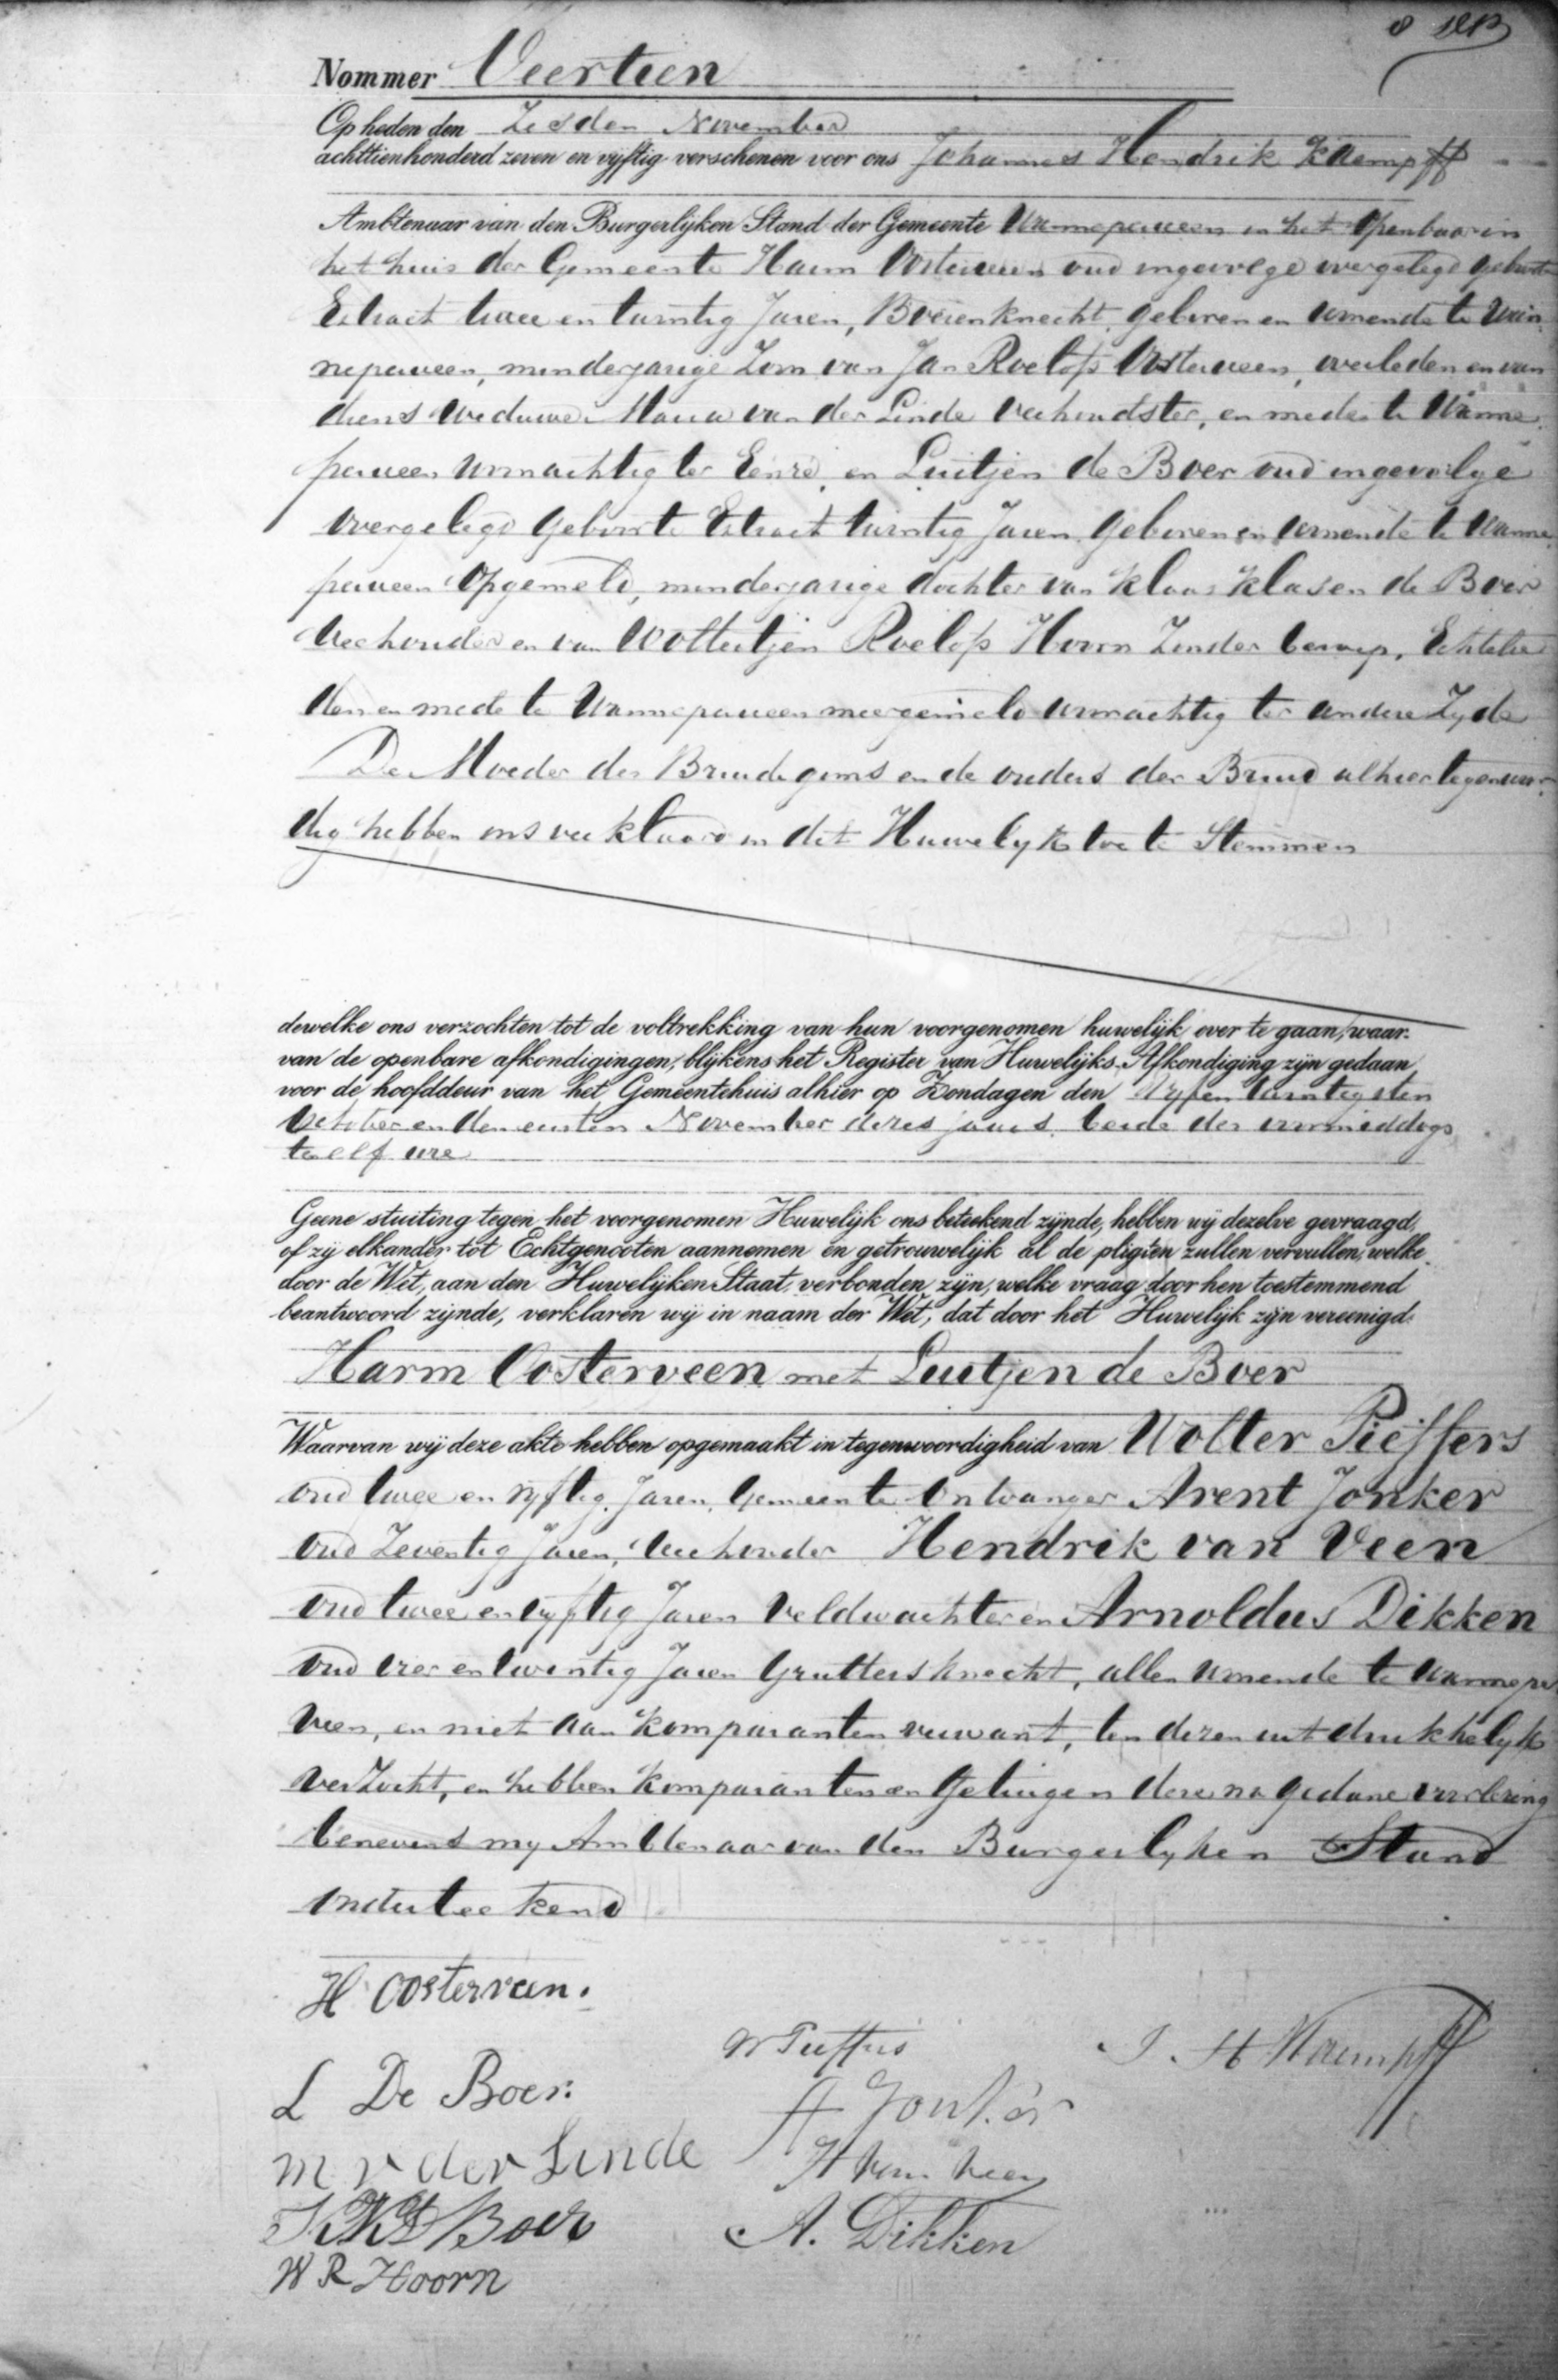 Nommer Veertien
Op heden den Zesden November
achttienhonderd zeven en vyftig verschenen voor ons Johannes Hendrik Kaempff
Ambtenaar van den Burgerlijken Stand der Gemeente Wanneperveen in het Openbaar in
het huis der Gemeente Harm Oosterveen oud ingevolge overgelegd geboorte
Extract twee en twintig Jaren, Boerenknecht, geboren en wonende te Wan
neperveen, minderjarige Zoon van Jan Roelofs Oosterveen, overleden en van
diens weduwe Maria van der Linde veehoudster, en mede te Wanne
perveen woonachtig ter Eenre, en Luitjen de Boer oud ingevolge
overgelegd Geboorte Extract twintig Jaren, Geboren en wonende te Wanne
perveen Opgemeld, minderjarige dochter van Klaas Klasen de Boer
Veehouder en van Woltertjen Roelofs Hoorn Zonder beroep, Echtelie
den en mede te Wanneperveen meergemeld woonachtig ter andere Zyde
De Moeder des Bruidegoms en de ouders der Bruid alhier tegenwoor
dig hebben ons verklaard in dit Huwelyk toe te Stemmen
dewelke ons verzochten tot de voltrekking van hun voorgenomen huwelijk over te gaan, waar-
van de openbare afkondigingen, blijkens het Register van Huwelijks-Afkondiging zijn gedaan
voor de hoofddeur van het Gemeentehuis alhier op Zondagen den vyf en twintigsten
October en den eersten November dezes jaars, beide des voormiddags
te elf ure
Geene stuiting tegen het voorgenomen Huwelijk ons beteekend zijnde, hebben wij dezelve gevraagd,
of zij elkander tot Echtgenooten aannemen en getrouwelijk al de pligten zullen vervullen, welke
door de Wet, aan den Huwelijken Staat, verbonden zijn, welke vraag door hen toestemmend
beantwoord zijnde, verklaren wij in naam der Wet, dat door het Huwelijk zijn vereenigd:
Harm Oosterveen met Luitjen de Boer
Waarvan wij deze akte hebben opgemaakt in tegenwoordigheid van Wolter Pieffers
oud twee en vyftig Jaren, Gemeente Ontvanger Arent Jonker
oud Zeventig Jaren, Veehouder Hendrik van Veen
oud twee en vyftig Jaren Veldwachter en Arnoldus Dikken
oud vier en twintig Jaren Gruttersknecht, allen wonende te Wannepe
veen, en niet aan komparanten verwant, ten dezen uitdrukkelyk
verzocht, en hebben komparanten en Getuigen deze na gedane voorlezing
benevens my Ambtenaar van den Burgerlyken Stand
onderteekend
H Oosterveen.
W Pieffers
J. H Kaempff
L De Boer.
A Jonker
M v der Linde
H van Veen
K K D Boer
A. Dikken
W R Hoorn